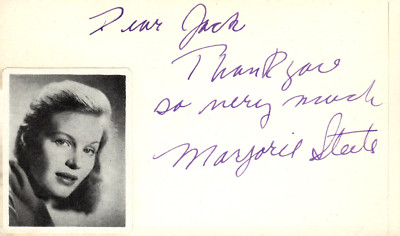 Dear Jack
Thank you
so very much
Marjorie Steele